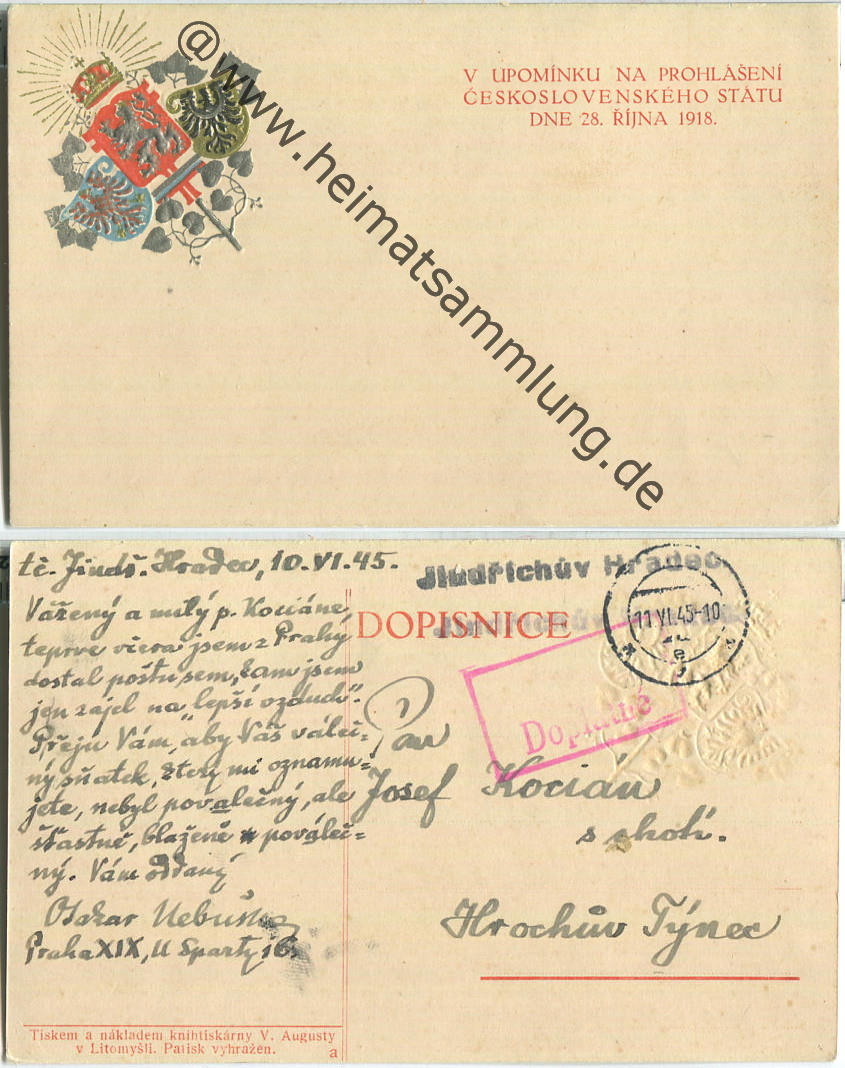 @www.heimatsammlung.de
V UPOMÍNKU NA PROHLÁŠENÍ
ČESKOSLOVENSKÉHO STÁTU
DNE 28. ŘÍJNA 1918.
tč. Jindř. Hradec, 10. VI. 45.
Vážený a milý p. Kociáne,
teprve včera jsem z Prahy
dostal poštu sem, kam jsem
jen zajel na „lepší vzduch“.
Přeji Vám, aby Váš váleč-
ný sňatek, který mi oznamu-
jete, nebyl povalečný, ale
šťastně, blaženě pováleč-
ný. Vám oddaný
Oskar
Praha XIX, U Sparty 16.
Tiskem a nákladem knihtiskárny V. Augusty
v Litomyšli. Patisk vyhražen.
a
Jindřichův Hradec
DOPISNICE
Jindřichův
11.VI.45-10
Doplatné
Pan
Josef Kocián
s chotí.
Hrochův Týnec